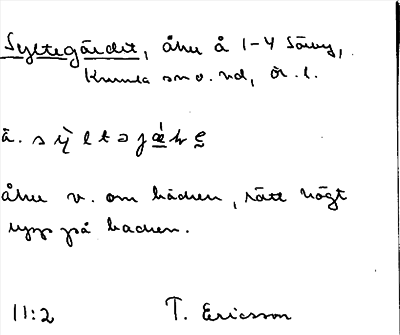 Syltegärdet, åker å 1-4 Sörby,
Kumla sn o. hd, Ör. l.
åker v. om bäcken, rätt högt
upp på backen.
11:2 T. Ericsson